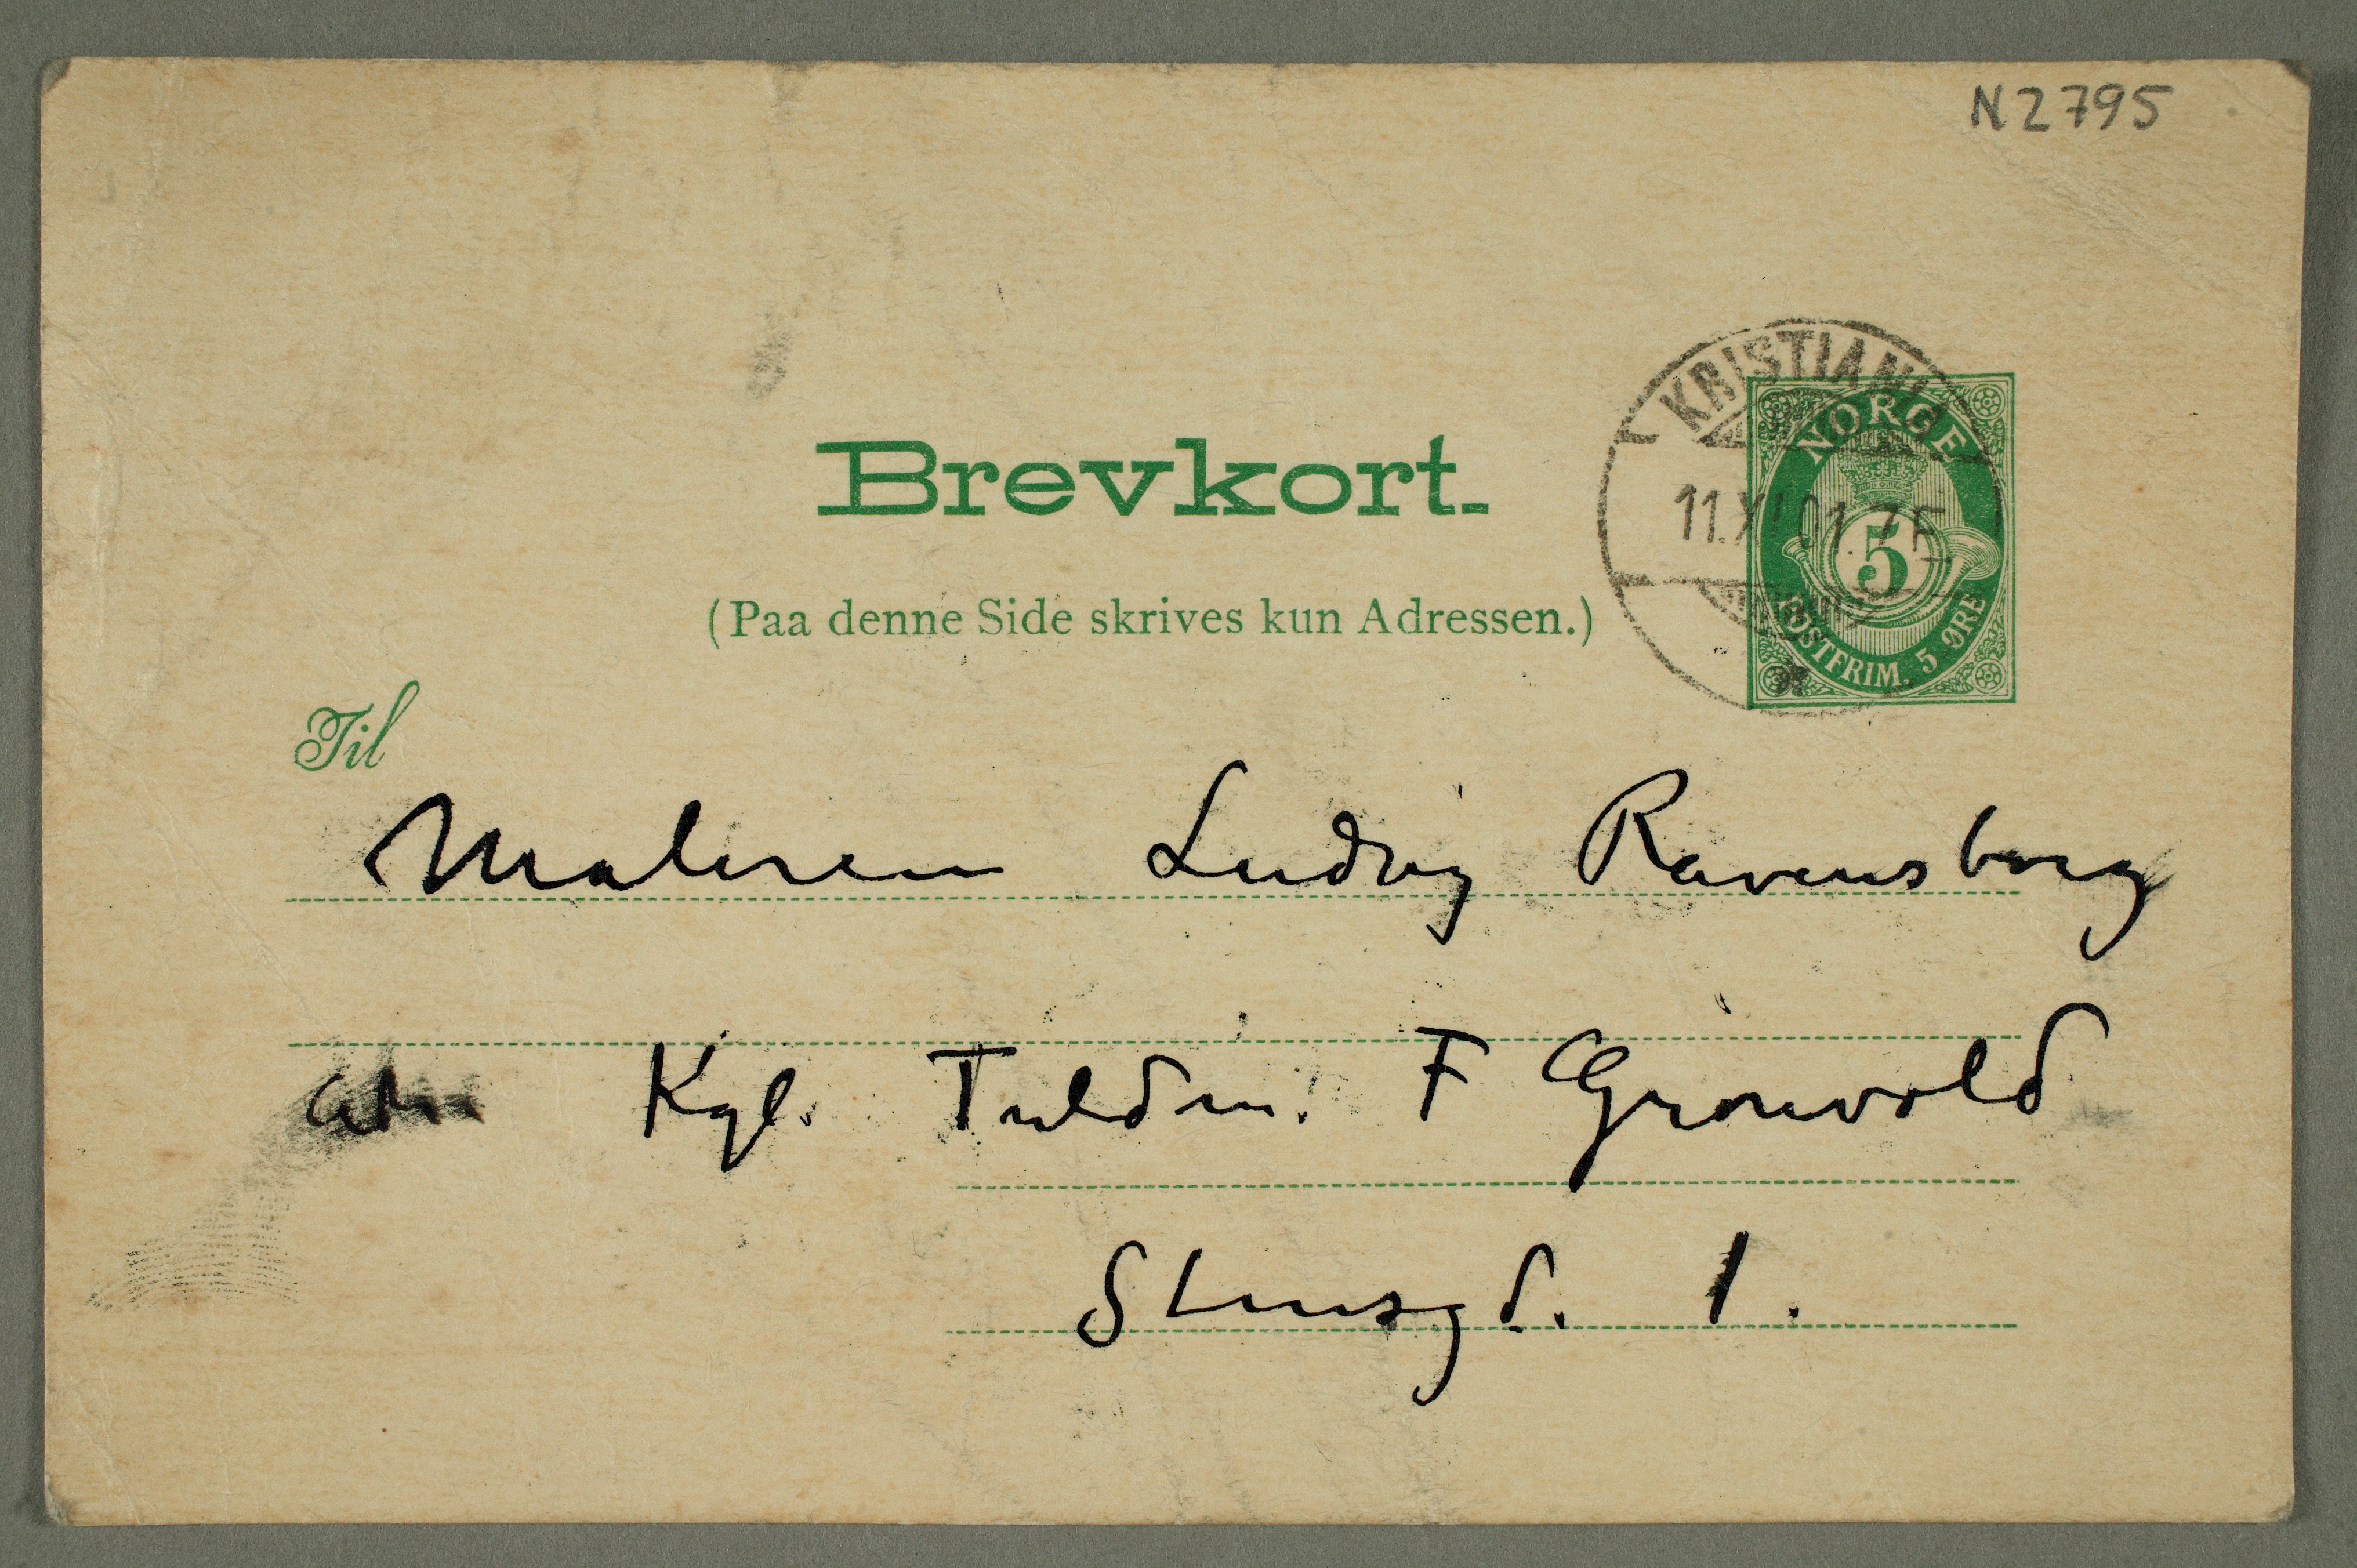 N 2795
Brevkort.
KRISTIANIA
NORGE
11.XI 01. 7 E
5
POSTFRIM. 5 ØRE
(Paa denne Side skrives kun Adressen.)
Til
Maleren Ludvig Ravensberg
Kgl. Fuldm. F Grønvold
Stensgd. 1.